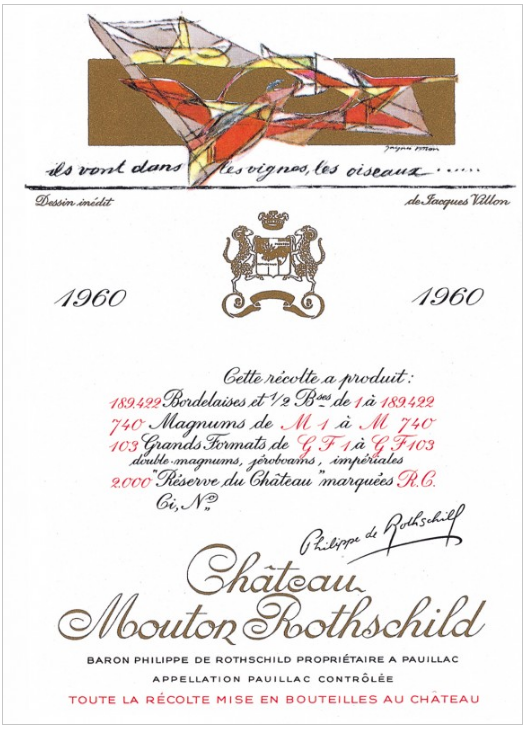 Jacques Villon
ils vont dans les vignes, les oiseaux ......
Dessin inédit de Jacques Villon
1960 1960
Cette récolte a produit :
189.422 Bordelaises et 1/2 Bses de 1 à 189.422
740 Magnums de M 1 à M 740
103 Grands Formats de G F 1 à G F 103
double-magnums, jéroboams, impériales
2.000 "Réserve du Château" marquées R.C.
Ci, No
Philippe de Rothschild
Château
Mouton Rothschild
BARON PHILIPPE DE ROTHSCHILD PROPRIÉTAIRE A PAUILLAC
APPELLATION PAUILLAC CONTRÔLÉE
TOUTE LA RÉCOLTE MISE EN BOUTEILLES AU CHÂTEAU